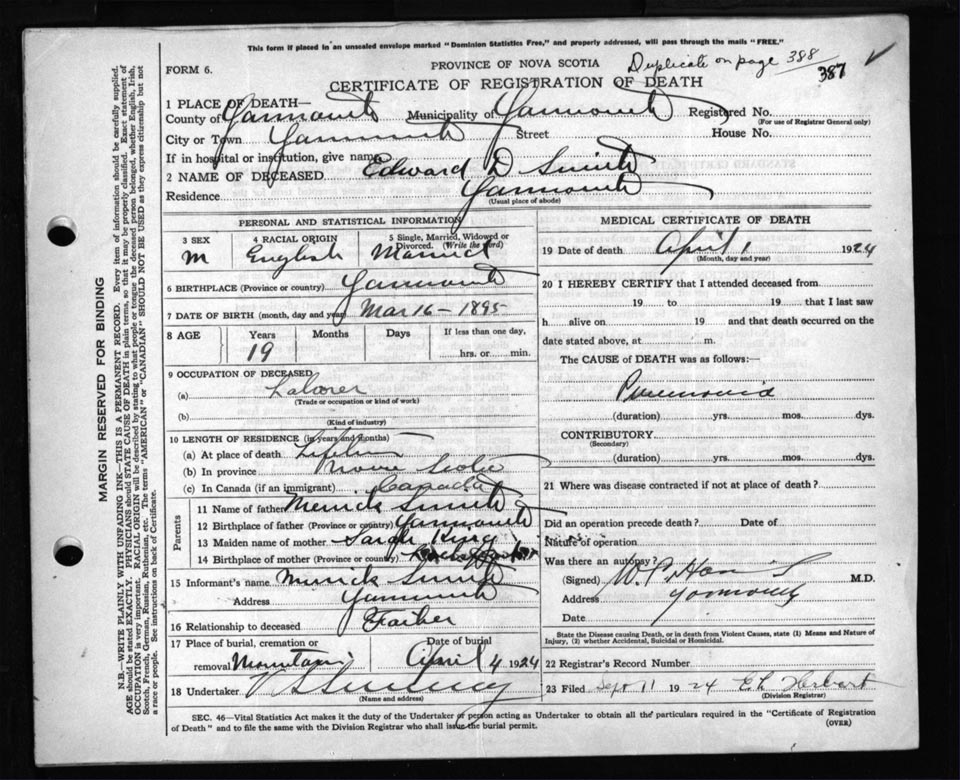 This form if placed in an unsealed envelope marked "Dominion Statistics Free," and properly addressed, will pass through the mails "FREE."
FORM 6.
PROVINCE OF NOVA SCOTIA
Duplicate on page 388
387
CERTIFICATE OF REGISTRATION OF DEATH
1 PLACE OF DEATH—
County of Yarmouth Municipality of Yarmouth Registered No.
(For use of Registrar General only)
City or Town Yarmouth Street House No.
If in hospital or institution, give name
2 NAME OF DECEASED Edward D Smith
Residence Yarmouth
(Usual place of abode)
PERSONAL AND STATISTICAL INFORMATION
3 SEX
M
4 RACIAL ORIGIN
English
5 Single, Married, Widowed or Divorced. (Write the word)
Married
6 BIRTHPLACE (Province or country) Yarmouth
7 DATE OF BIRTH (month, day and year) Mar 16 - 1895
8 AGE
Years
19
Months
Days
If less than one day,
hrs. or min.
9 OCCUPATION OF DECEASED
(a) Laborer
(Trade or occupation or kind of work)
(b)
(Kind of industry)
10 LENGTH OF RESIDENCE (in years and months)
(a) At place of death Lifetime
(b) In province Nova Scotia
(c) In Canada (if an immigrant) Canada
Parents
11 Name of father Merrick Smith
12 Birthplace of father (Province or country) Yarmouth
13 Maiden name of mother Sarah King
14 Birthplace of mother (Province or country)
15 Informant's name Merrick Smith
Address Yarmouth
16 Relationship to deceased Father
17 Place of burial, cremation or removal Mountain
Date of burial
April 4 1924
18 Undertaker
(Name and address)
MEDICAL CERTIFICATE OF DEATH
19 Date of death April 1 1924
(Month, day and year)
20 I HEREBY CERTIFY that I attended deceased from
19 to 19 that I last saw
h alive on 19 and that death occurred on the
date stated above, at m.
The CAUSE of DEATH was as follows:—
Pneumonia
(duration) yrs. mos. dys.
CONTRIBUTORY
(Secondary)
(duration) yrs. mos. dys.
21 Where was disease contracted if not at place of death?
Did an operation precede death? Date of
Nature of operation
Was there an autopsy?
(Signed) W. P. M.D.
Address Yarmouth
Date
State the Disease causing Death, or in death from Violent Causes, state (1) Means and Nature of
Injury, (2) whether Accidental, Suicidal or Homicidal.
22 Registrar's Record Number
23 Filed Sept 11 1924 E h Herbert
(Division Registrar)
SEC. 46—Vital Statistics Act makes it the duty of the Undertaker or person acting as Undertaker to obtain all the particulars required in the "Certificate of Registration
of Death" and to file the same with the Division Registrar who shall issue the burial permit.
(OVER)
MARGIN RESERVED FOR BINDING
N.B.—WRITE PLAINLY WITH UNFADING INK—THIS IS A PERMANENT RECORD. Every item of information should be carefully supplied.
AGE should be stated EXACTLY. PHYSICIANS should STATE CAUSE OF DEATH in plain terms, so that it may be properly classified. Exact statement of
OCCUPATION is very important. RACIAL ORIGIN will be described by stating to what people or tongue the deceased person belonged, whether English, Irish,
Scotch, French, German, Russian, Ruthenian, etc. The terms "AMERICAN" or "CANADIAN" SHOULD NOT BE USED as they express citizenship but not
a race or people. See instructions on back of Certificate.